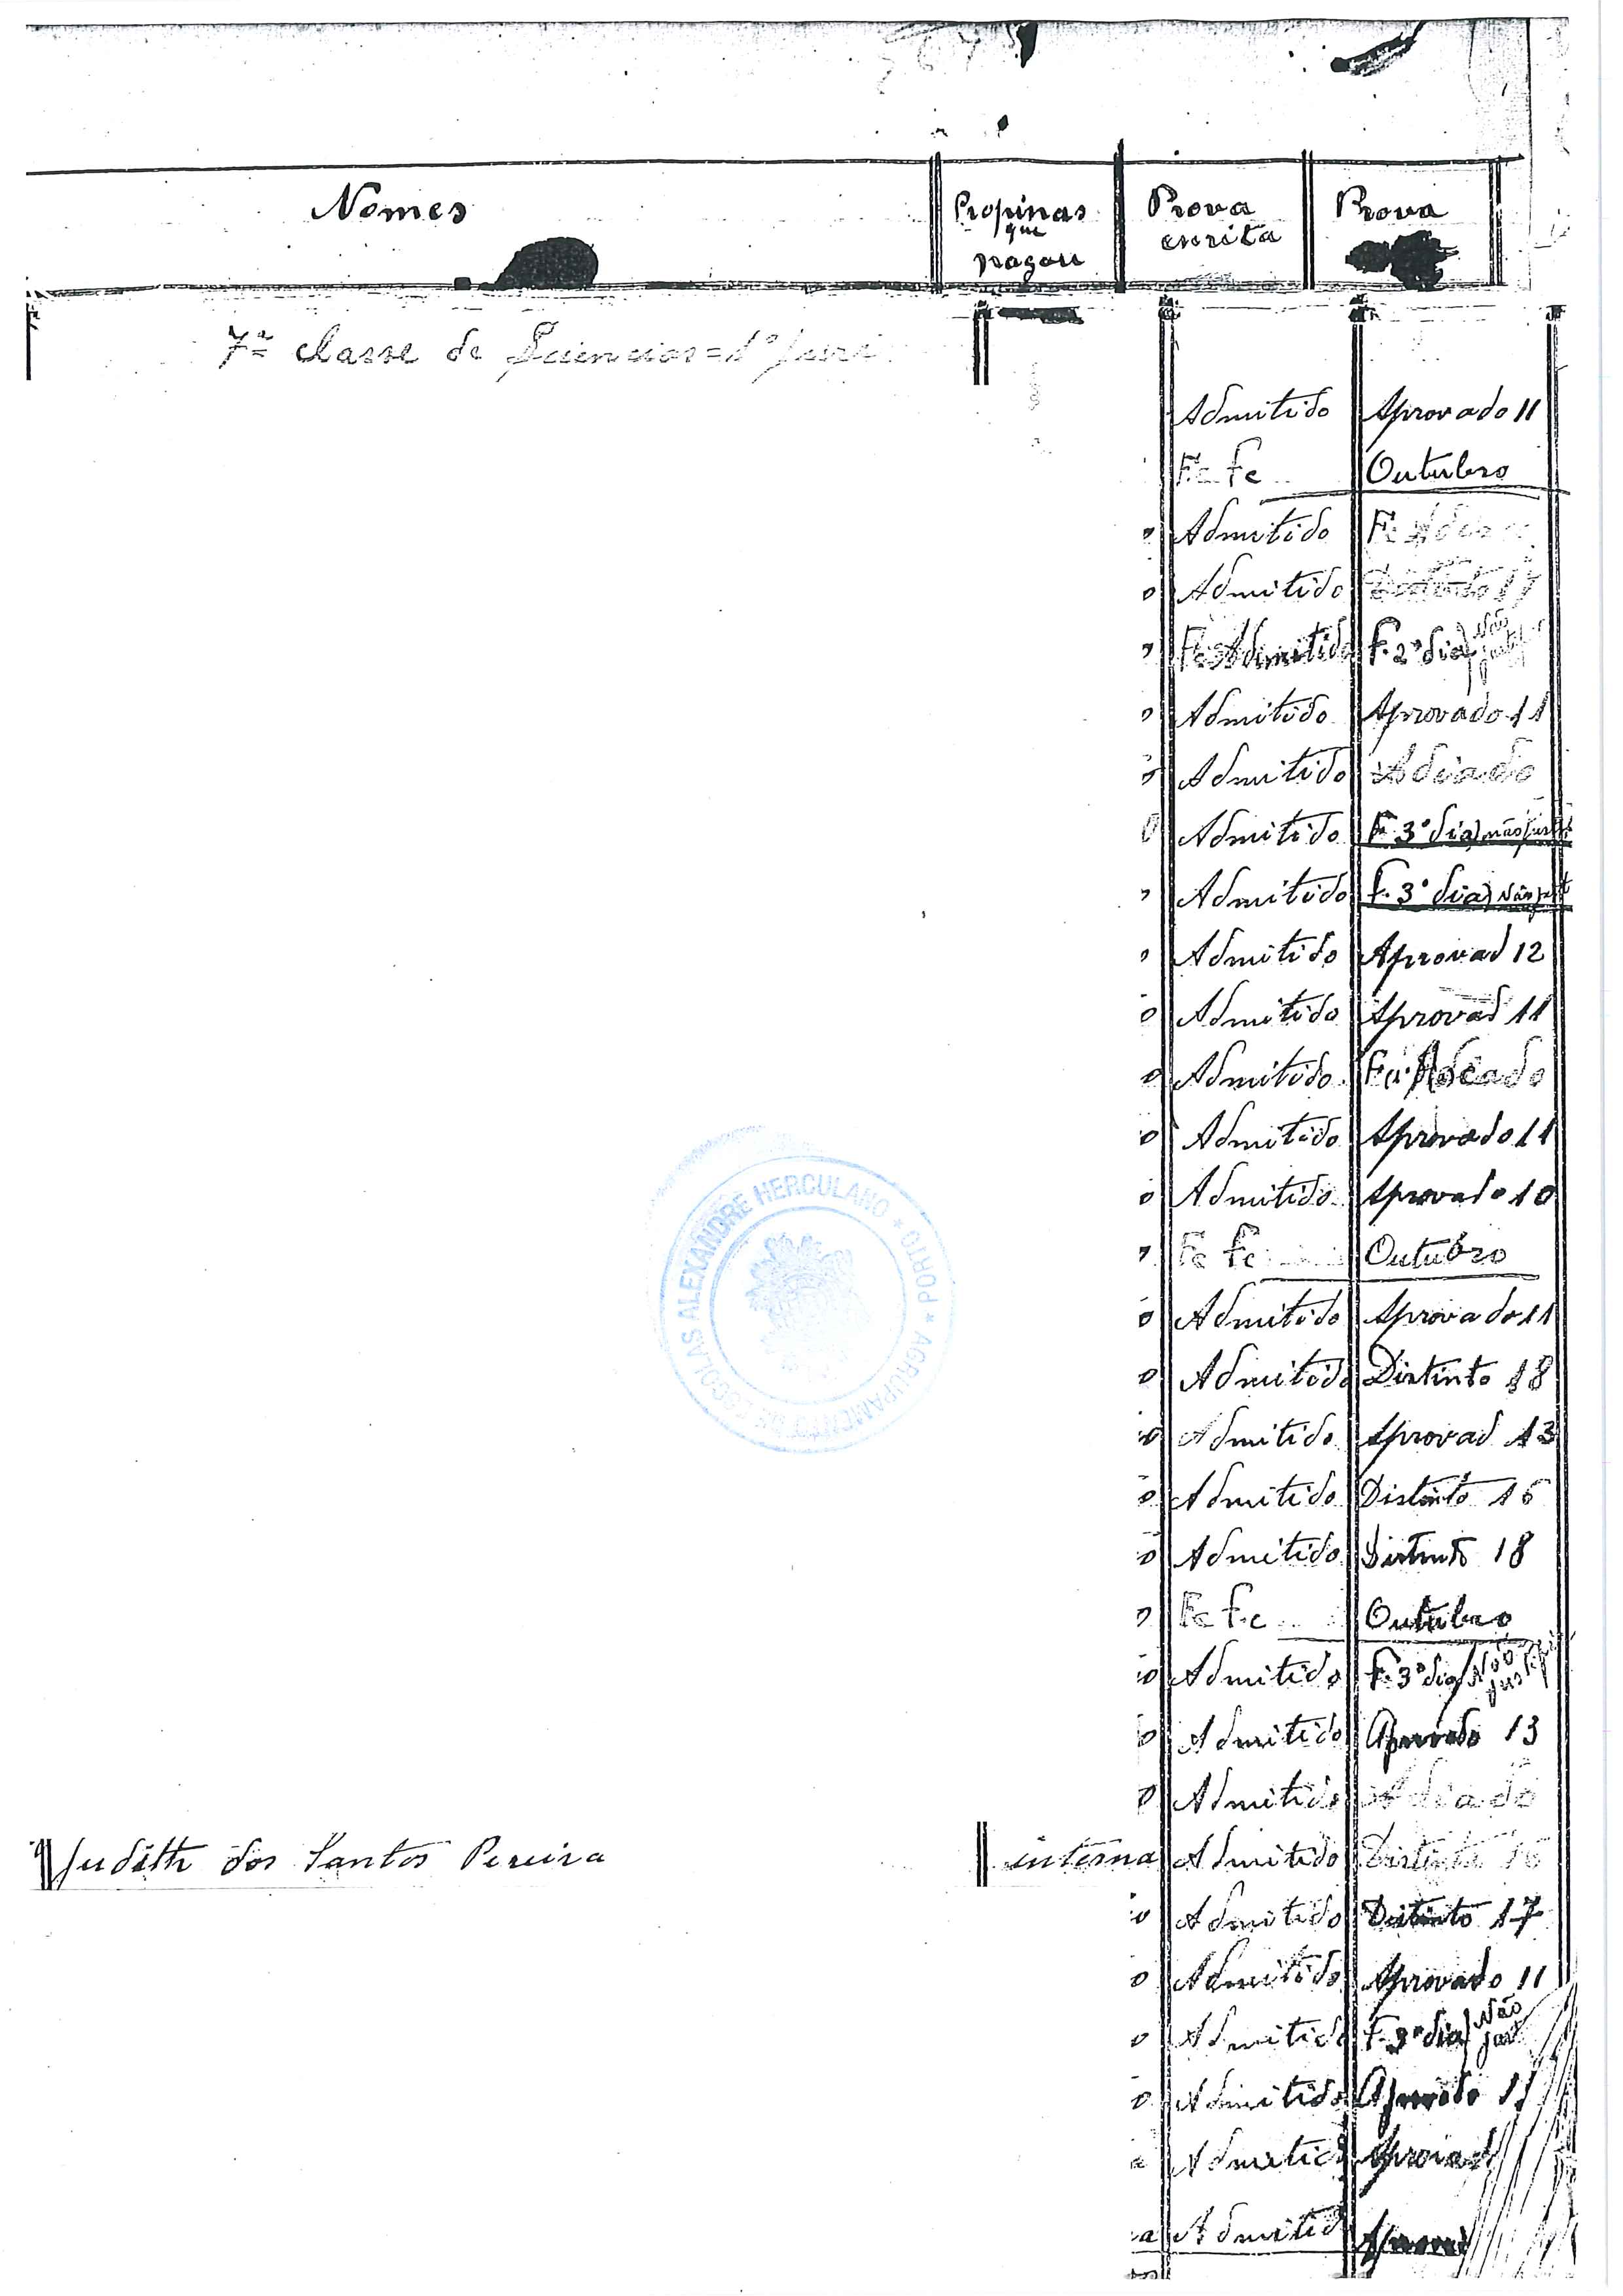 Nomes
Propinas
que
pagou
Prova
escrita
Prova
7ª classe de Sciencias = 1º juri
Admitido Aprovado 11
Fc fc Outubro
o Admitido
o Admitido Distinto 17
o Fc Admitido F. 2º dia) Não
o Admitido Aprovado 11
o Admitido Adiado
o Admitido F. 3º dia) não just
o Admitido F. 3º dia) Não just
o Admitido Aprovad 12
o Admitido Aprovad 11
o Admitido Adiado
o Admitido Aprovado 11
o Admitido Aprovado 10
o Fc fc Outubro
o Admitido Aprovado 11
o Admitido Distinto 18
o Admitido Aprovad 13
o Admitido Distinto 16
o Admitido Distinto 18
o Fc fc Outubro
o Admitido F. 3º dia) Não
o Admitido Aprovado 13
o Admitido Adiado
Judith dos Santos Pereira interna Admitido Distinta 16
o Admitido Distinto 17
o Admitido Aprovado 11
o Admitido F. 3º dia) Não just
o Admitido Aprovado 11
a Admitid Aprovad
a Admitid
AGRUPAMENTO DE ESCOLAS ALEXANDRE HERCULANO * PORTO *